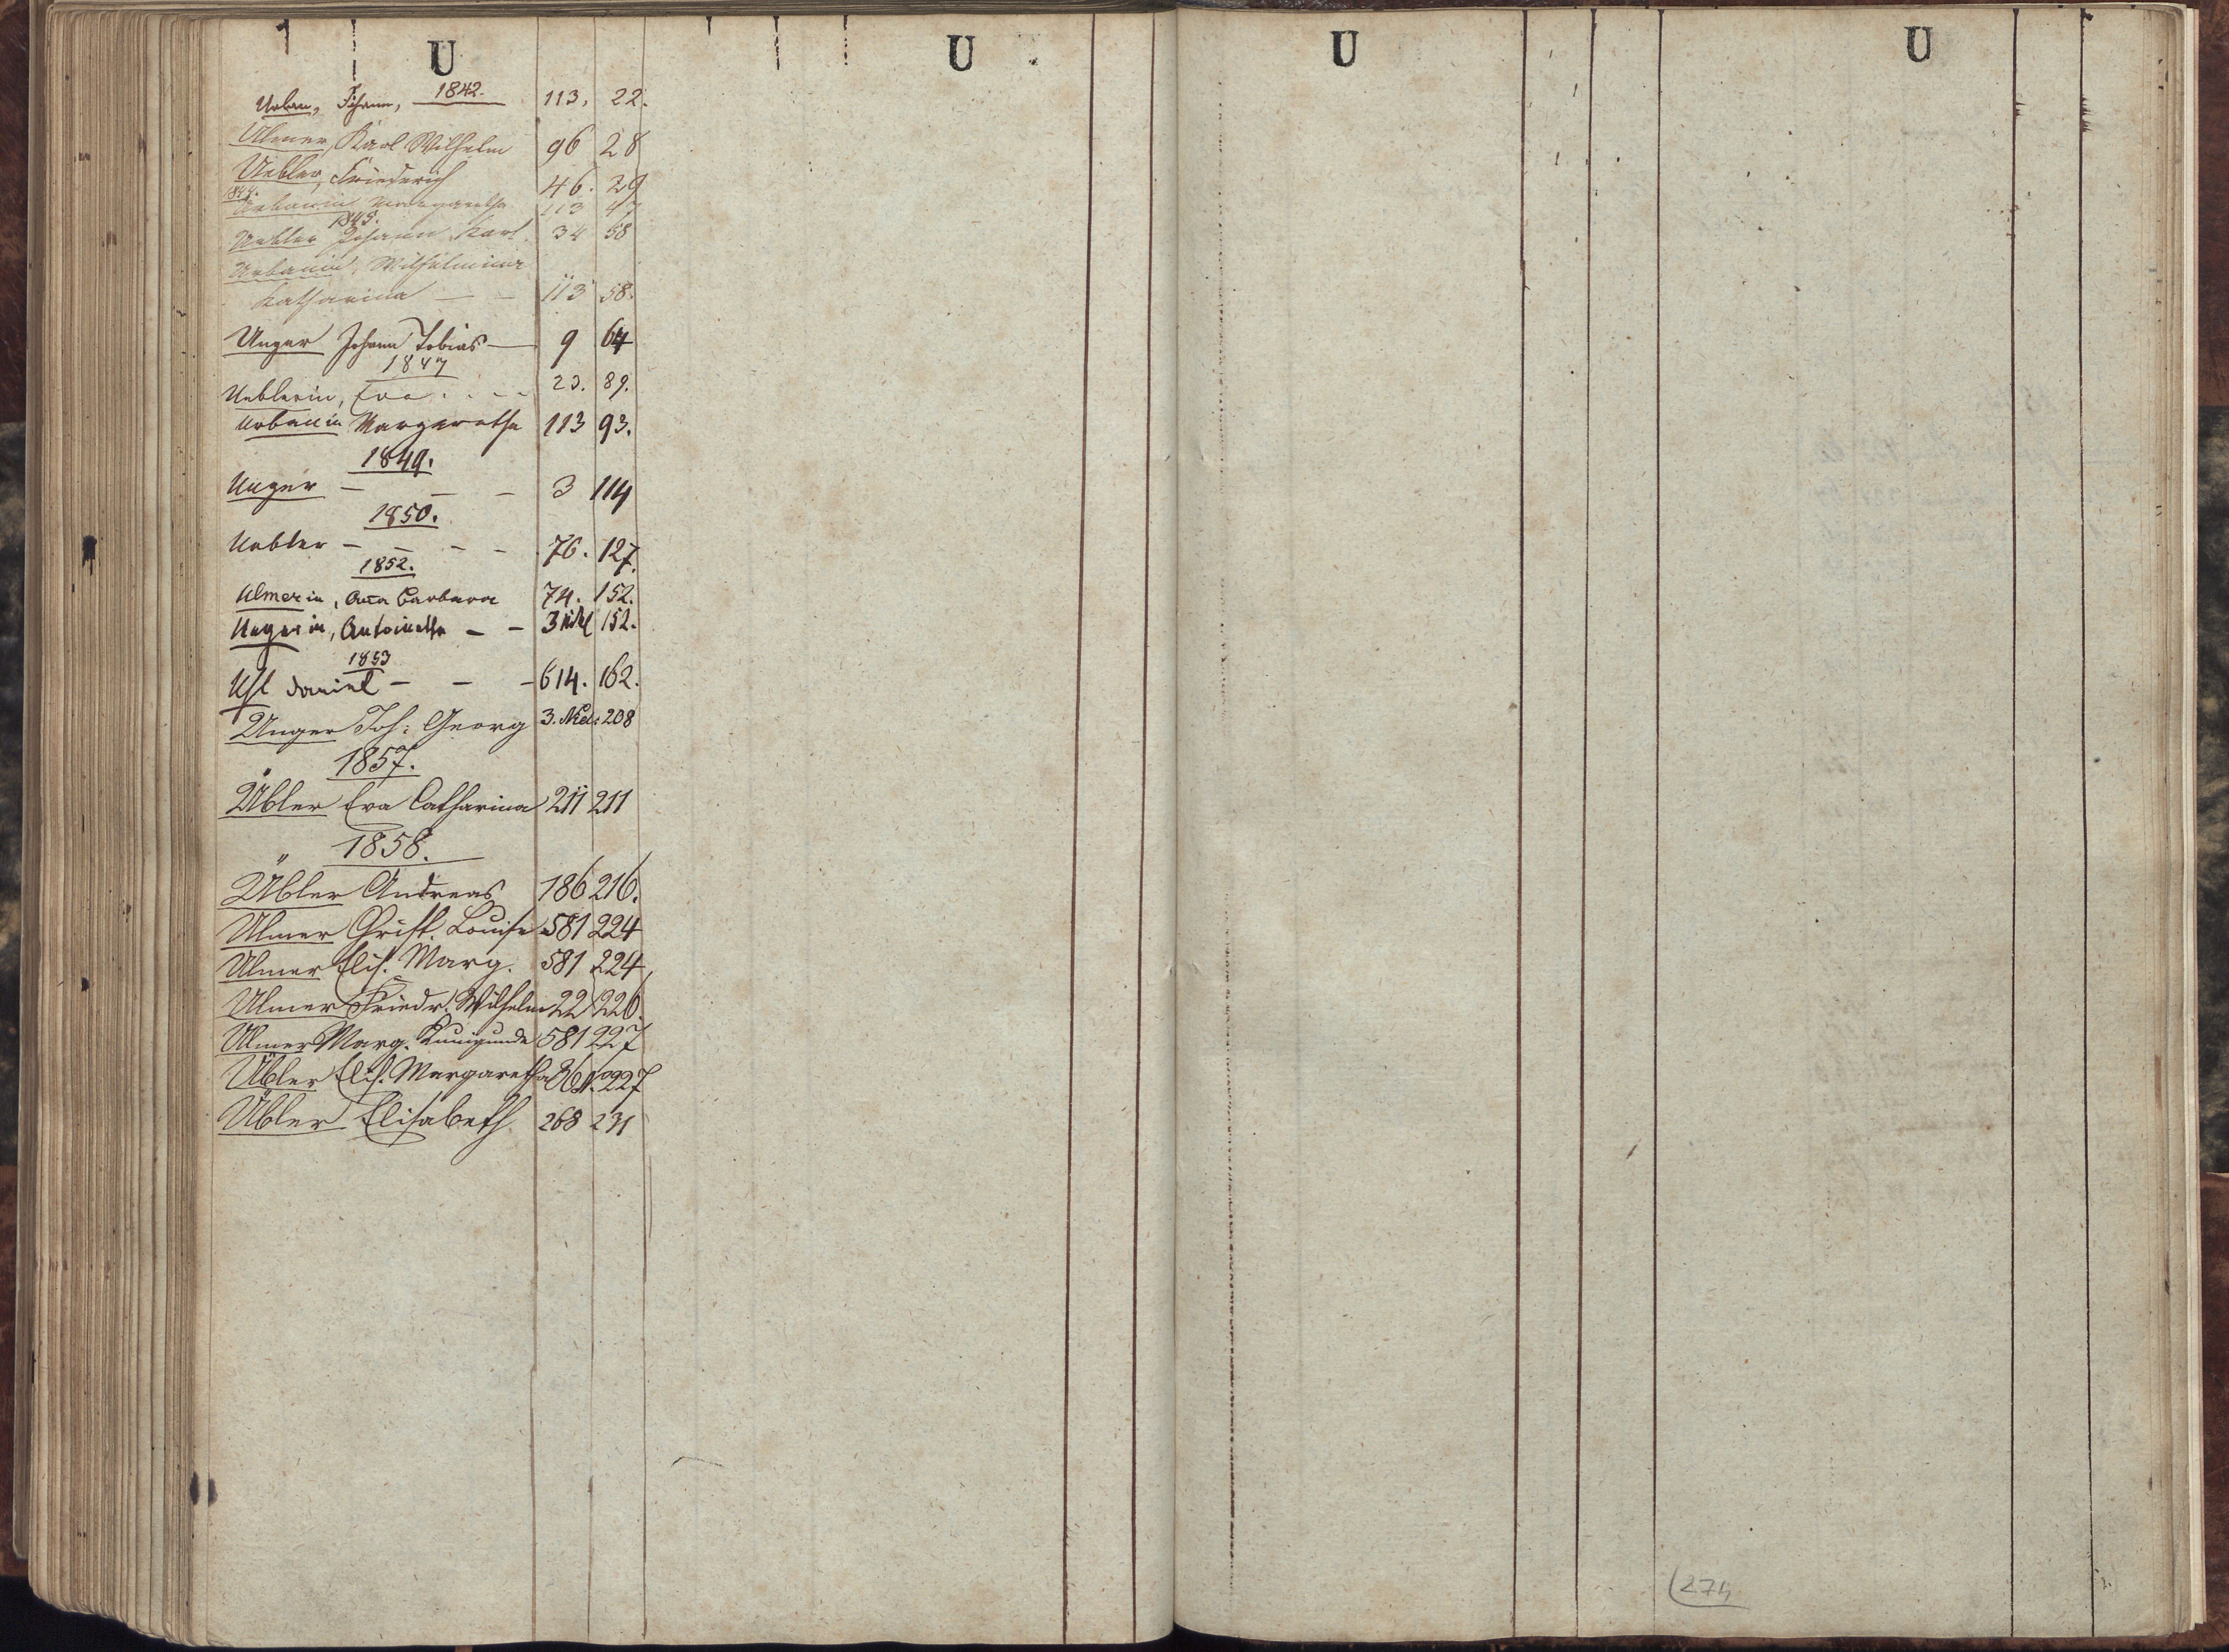 U
Urban, Johann, 1842. 113. 22.
Ulmer, Karl Wilhelm 96 28
Uebler, Friederich 46. 29
1844.
Urbanin Margaretha 113 47
1845.
Uebler Johann Karl. 34 58
Urbanin, Wilhelmina
Katharina — — 113 58.
Unger Johann Tobias — 9 64
1847
Ueblerin, Eva . . - - 23. 89.
Urbanin Margaretha 113 93.
1849.
Unger — — — 3 114
1850.
Uebler — — - - 76. 127.
1852.
Ulmerin, Anna Barbara 74. 152.
Ungerin, Antoinetta — — 3 152.
1853
Daniel — — — 614. 162.
Unger Joh: Georg 3. 208
1857.
Übler Eva Catharina 211 211
1858.
Übler Andreas 186 216.
Ulmer Christ. Louise 581 224
Ulmer Elis. Marg. 581 224
Ulmer Friedr. Wilhelm 22 226.
Ulmer Marg. Kunigunda 581 227
Übler Elis. Margaretha 227
Übler Elisabeth 268 231
U
U
U
274